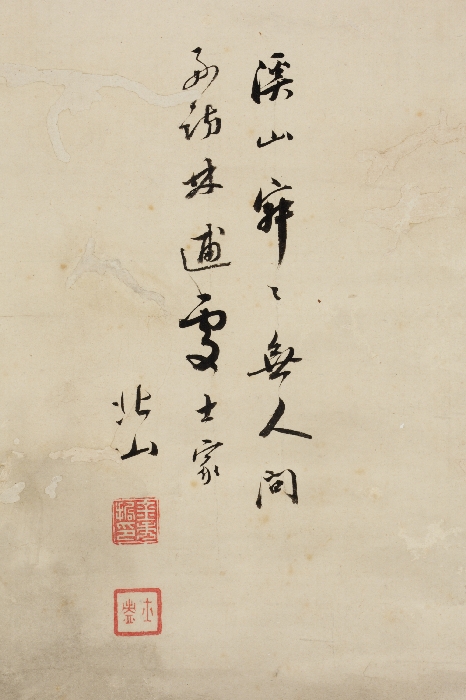 溪山寂々無人問
好訪林逋處士家
北山